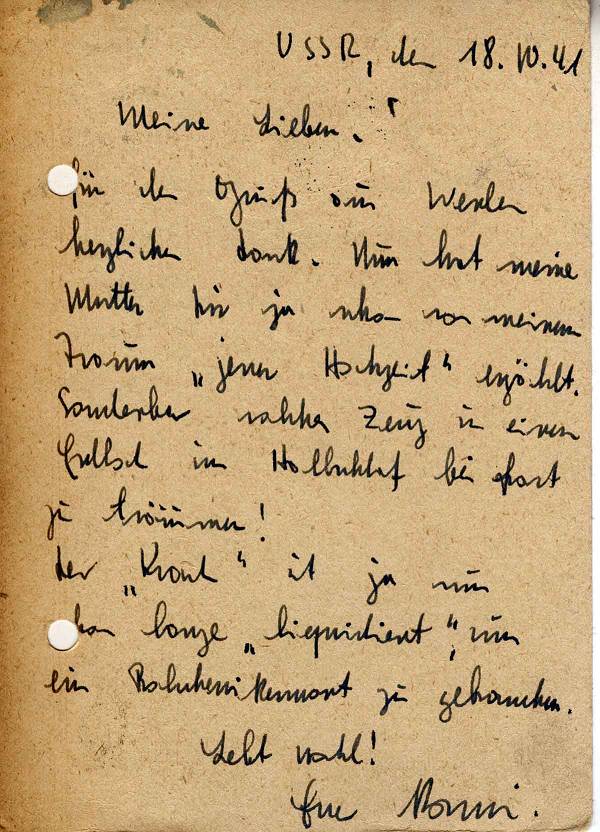 USSR, den 18.10.41
Meine Lieben!
für den Gruß aus Werden
herzlichen Dank. Nun hat meine
Mutter Dir ja schon von meinem
Traum „jener Hochzeit“ erzählt.
Sonderbar solches Zeug in einem
im Halbschlaf bei fast
zu träumen!
der ist ja nun
schon lange „liquidiert“, um
ein zu gebrauchen.
Lebt wohl!
Euer